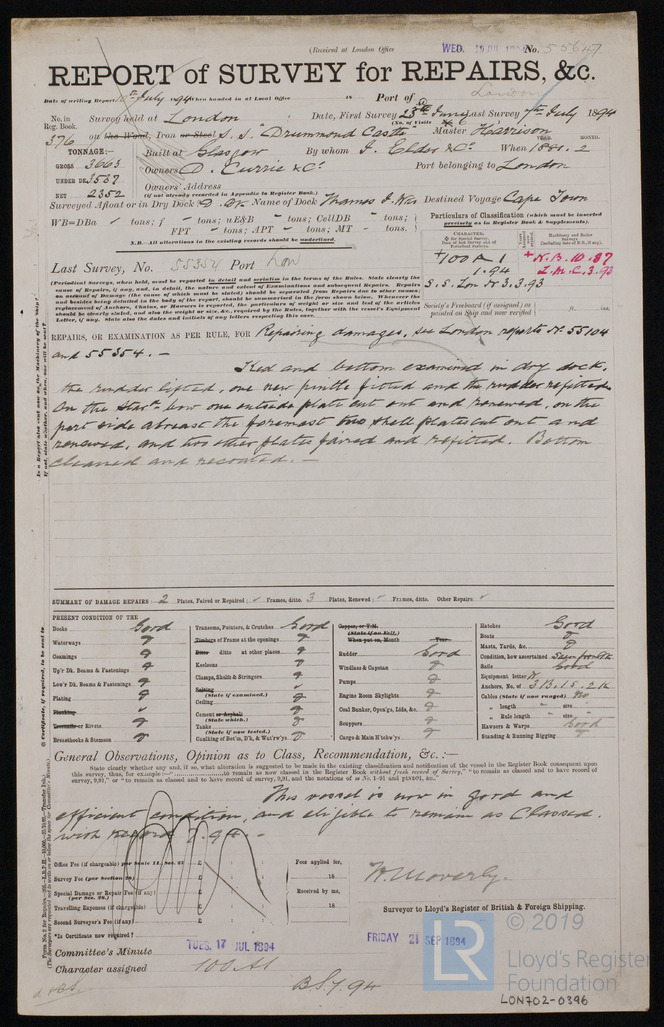 (Received at London Office WED. 18 JUL 1894 No. 55647
REPORT of SURVEY for REPAIRS, &c.
Date of writing Report 10th July 1894 When handed in at Local Office 18 Port of London
No. in Reg. Book. 376
Survey held at London Date, First Survey 23rd June Last Survey 7th July 1894
(No. of Visits 6)
on the Wood, Iron or Steel S. S. "Drummond Castle" Master Harrison
TONNAGE:—
GROSS 3663
UNDER DK. 3537
NET 2352
Built at Glasgow By whom J. Elder & Co. When 1881. 2
YEAR. MONTH.
Owners D. Currie & Co. Port belonging to London
Owners' Address
(if not already recorded in Appendix to Register Book.)
Surveyed Afloat or in Dry Dock? D. Dk Name of Dock Thames I. Wks Destined Voyage Cape Town
WB=DBa tons; f tons; uE&B tons; CellDB tons;
FPT tons; APT tons; MT tons.
N.B.—All alterations in the existing records should be underlined.
Particulars of Classification (which must be inserted precisely as in Register Book & Supplements).
+100 A 1
1.94
S. S. Lon No 3. 3. 93
+ N. B. 10. 87
L. M. C. 3. 93
Society's Freeboard (if assigned) as painted on Ship and now verified ft. ins.
Last Survey, No. 55354 Port Lon
REPAIRS, OR EXAMINATION AS PER RULE, FOR Repairing damages, see London reports No 55104
and 55354. —
Keel and bottom examined in dry dock,
the rudder lifted, one new pintle fitted and the rudder refitted.
On the Starbd bow one outside plate cut out and renewed, on the
port side abreast the foremast two shell plates cut out and
renewed, and two other plates faired and refitted. Bottom
cleaned and recoated. —
SUMMARY OF DAMAGE REPAIRS: 2 Plates, Faired or Repaired; Frames, ditto. 3 Plates, Renewed; Frames, ditto. Other Repairs.
PRESENT CONDITION OF THE
Decks Good
Waterways g
Coamings g
Up'r Dk. Beams & Fastenings g
Low'r Dk. Beams & Fastenings g
Plating g
Planking
Treenails or Rivets g
Breasthooks & Stemson g
Transoms, Pointers, & Crutches Good
Timbers of Frame at the openings g
Ditto ditto at other places g
Keelsons g
Clamps, Shelfs & Stringers g
Salting
(State if examined.)
Ceiling g
Cement or Asphalt g
(State which.)
Tanks
(State if now tested.)
Caulking of Bot'm, D'k, & Wat'rw'ys g
Copper, or Y.M.
(State if on Felt.)
When put on, Month Year
Rudder Good
Windlass & Capstan g
Pumps g
Engine Room Skylights g
Coal Bunker, Open'gs, Lids, &c. g
Scuppers g
Cargo & Main H'tchw'ys g
Hatches Good
Boats g
Masts, Yards, &c. g
Condition, how ascertained
Sails Good
Equipment letter
Anchors, No. of 3 B. 1 S. 2 K
Cables (State if now ranged) No
" length size
" Rule length size
Hawsers & Warps Good
Standing & Running Rigging g
General Observations, Opinion as to Class, Recommendation, &c.:—
State clearly whether any and, if so, what alteration is suggested to be made in the existing classification and notification of the vessel in the Register Book consequent upon
This vessel is now in good and
efficient condition, and eligible to remain as Classed.
with Record 7.94. —
Office Fee (if chargeable) per Scale II., Sec. 27 £
Survey Fee (per Section 28) £
Special Damage or Repair Fee (if any) £
(per Sec. 28.)
Travelling Expenses (if chargeable) £
Second Surveyor's Fee (if any) £
Fees applied for,
18
Received by me,
18
W. Moverly.
Surveyor to Lloyd's Register of British & Foreign Shipping.
*Is Certificate now required?
Committee's Minute TUES. 17 JUL 1894 FRIDAY 21 SEP 1894
Character assigned 100 A1
B.S. 7.94
LR
© 2019
Lloyd's Register
Foundation
LON702-0396